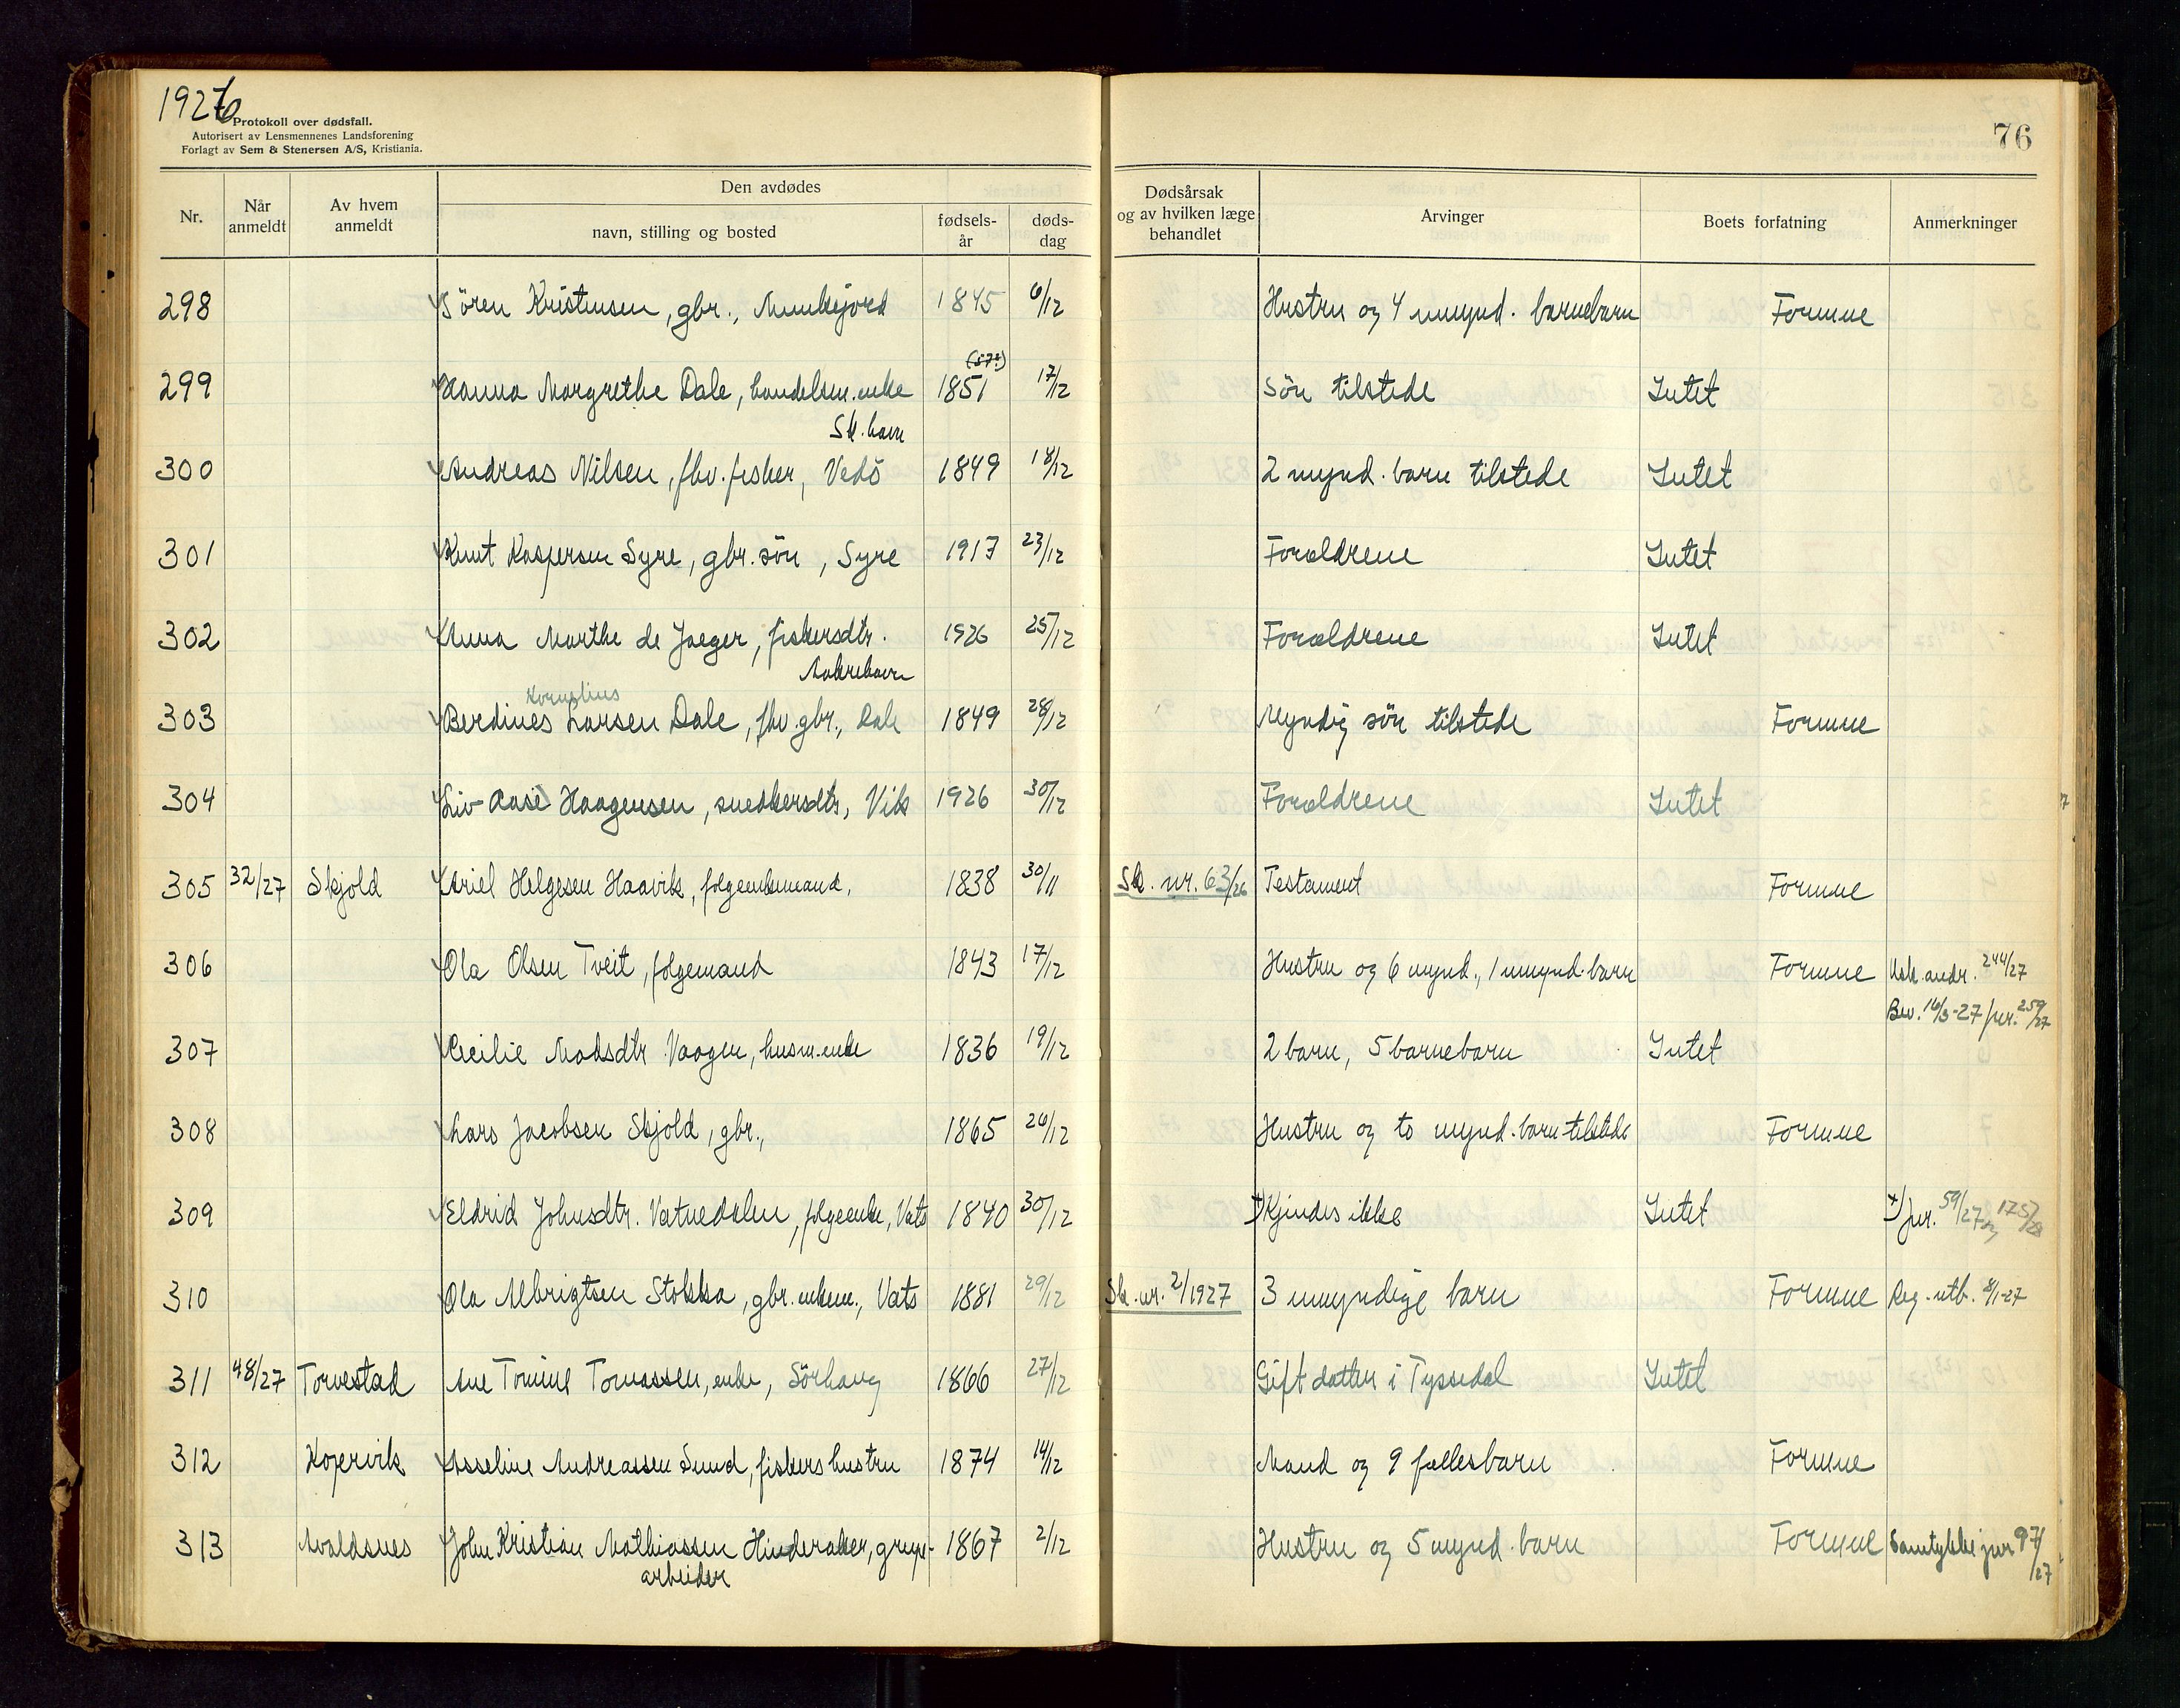 1926
Protokoll over dødsfall.
Autorisert av Lensmennenes Landsforening
Forlagt av Sem & Stenersen A/S, Kristiania.
76
Nr. Når anmeldt Av hvem anmeldt Den avdødes navn, stilling og bosted fødsels-år døds-dag Dødsårsak og av hvilken læge behandlet Arvinger Boets forfatning Anmerkninger
298 Sören Kristensen, gbr., Munkejord 1845 6/12 Hustru og 4 umynd. barnebarn Formue
(57?)
299 Hanna Margrethe Dale, handelsm.enke 1851 17/12 Sön tilstede Intet
Sk.havn
300 Andreas Nilsen, fhv. fisker, Vedö 1849 18/12 2 mynd. barn tilstede Intet
301 Knut Kaspersen Syre, gbr. sön, Syre 1917 23/12 Forældrene Intet
302 Anna Marthe de Jaeger, fiskersdtr. 1926 25/12 Forældrene Intet
Aakrehavn
Kornelius
303 Berdines Larsen Dale, fhv. gbr., Dale 1849 28/12 Myndig sön tilstede Formue
304 Liv Aase Haagensen, snedkersdtr, Vik 1926 30/12 Forældrene Intet
305 32/27 Skjold Ariel Helgesen Haavik, folgeenkemand, 1838 30/11 Sk. nr. 63/26 Testament Formue
306 Ola Olsen Tveit, folgemand 1843 17/12 Hustru og 6 mynd., 1 umynd. barn Formue Usk. andr. 244/27
Bev. 16/3-27 jnr. 259/27
307 Cecilie Madsdtr Vaagen, husm.enke 1836 19/12 2 barn, 5 barnebarn Intet
308 Lars Jacobsen Skjold, gbr., 1865 26/12 Hustru og to mynd. barn tilstede Formue
309 Eldrid Johnsdtr. Vatnedalen, folgeenke, Vats 1840 30/12 +) Kjendes ikke Intet +) jnr. 59/27
310 Ola Albrigtsen Stokka, gbr. enkem., Vats 1881 29/12 Sk. nr. 2/1927 3 umyndige barn Formue Reg. utb. 8/1-27
311 48/27 Torvestad Ane Tomine Tomassen, enke, Sörhaug 1866 27/12 Gift datter i Tyssedal Intet
312 Kopervik Asseline Andreassen Sund, fiskers hustru 1874 14/12 Mand og 9 fællesbarn Formue
313 Avaldsnes John Kristian Mathiassen Hinderaker, grube- 1867 2/12 Hustru og 5 mynd. barn Formue Samtykke jnr 97/27
arbeider